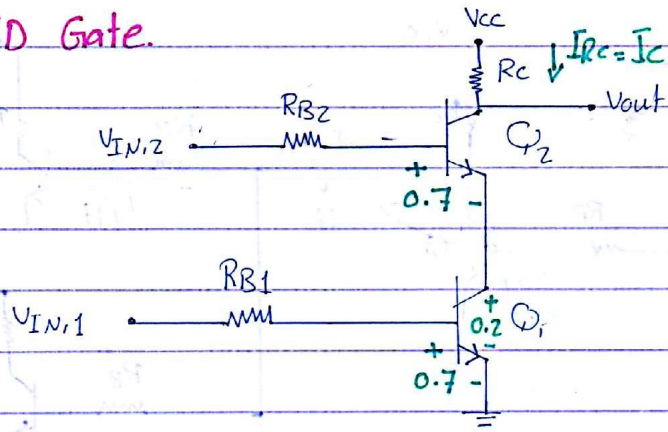 D Gate.
Vcc
Rc
IRc = Ic
Vout
RB2
VIN,2
Q2
+
0.7 -
RB1
VIN,1
+
0.2
-
Q1
+
0.7 -